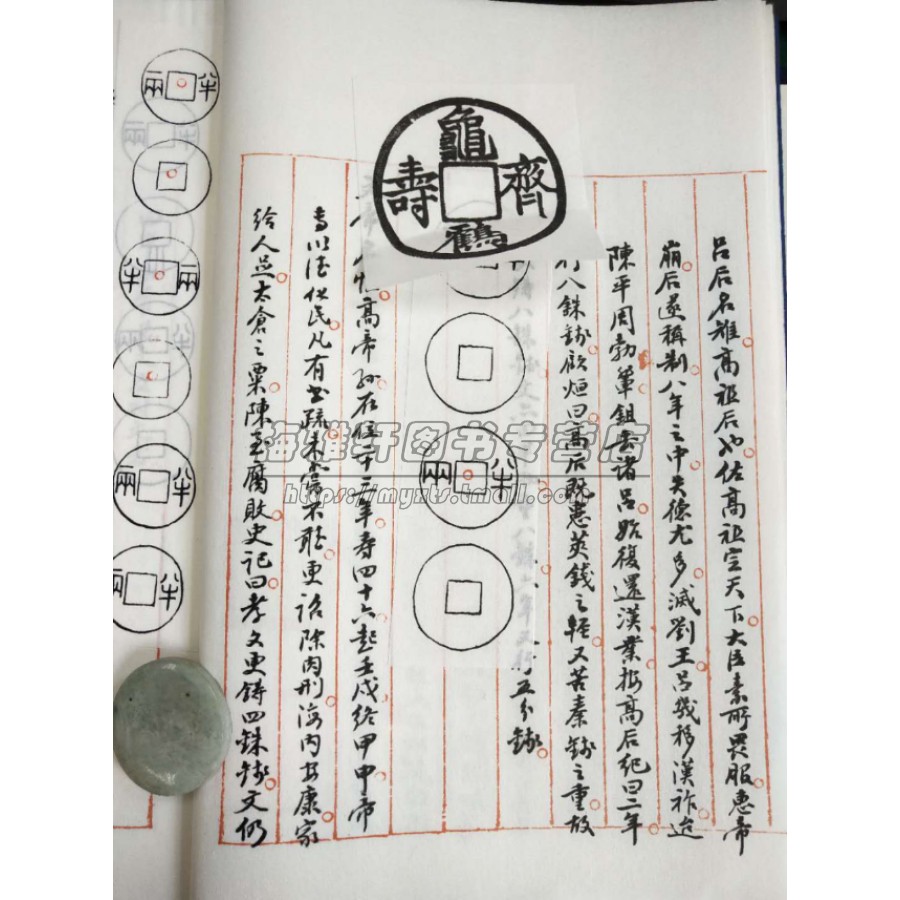 呂后名雉高祖后也佐高祖定天下大臣素所畏服惠帝
崩后遂稱制八年之中失德尤多滅劉王呂幾移漢祚迨
陳平周勃軍鉏去諸呂始復還漢業按高后紀曰二年
行八銖錢顧烜曰高后既患莢錢之輕又苦秦錢之重故
五分錢
高帝子在位二十三年壽四十六起壬戌終甲申帝
專以德化民凡有書疏未嘗不聽更詔除肉刑海内安康家
給人足太倉之粟陳至腐敗史記曰孝文更鑄四銖錢文仍
龜鶴齊壽
半兩
半兩
半兩
半兩
半兩
海雅轩图书专营店
https://myxts.tmall.com